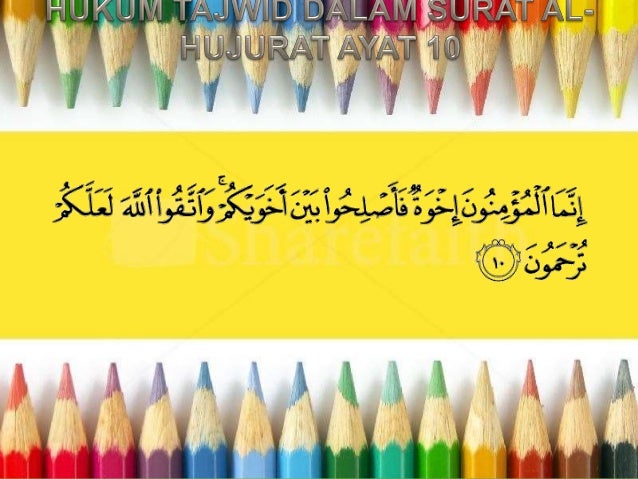 HUKUM TAJWID DALAM SURAT AL-
HUJURAT AYAT 10
إِنَّمَا ٱلْمُؤْمِنُونَ إِخْوَةٌ فَأَصْلِحُوا۟ بَيْنَ أَخَوَيْكُمْ ۚ وَٱتَّقُوا۟ ٱللَّهَ لَعَلَّكُمْ
تُرْحَمُونَ ١٠